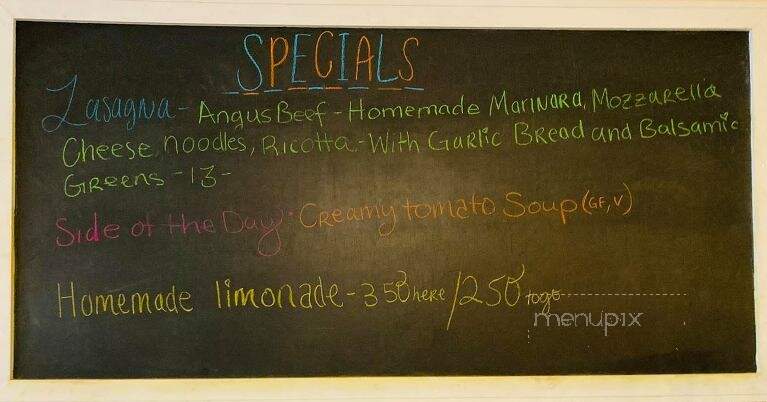 SPECIALS
Lasagna - Angus Beef - Homemade Marinara, Mozzarella
Cheese, noodles, Ricotta - With Garlic Bread and Balsamic
Greens - 13 -
Side of the Day · Creamy tomato Soup (GF, V)
Homemade limonade - 3 50 here / 2 50 togo
menupix